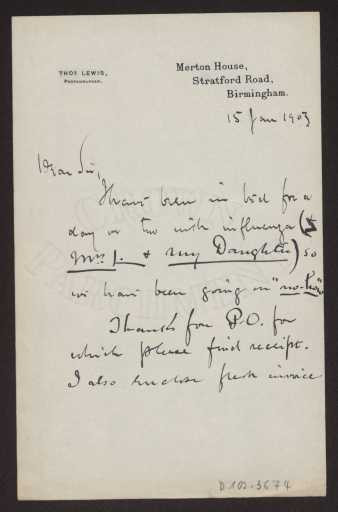 THOS LEWIS,
PHOTOGRAPHER.
Merton House,
Stratford Road,
Birmingham.
15 Jan 1903
Dear Sir,
I have been in bed for a
day or two with influenza (&
Mrs L. & my Daughter) so
we have been going on "no-how"
Thanks for P.O. for
which please find receipt.
I also enclose fresh invoice
D102-3674